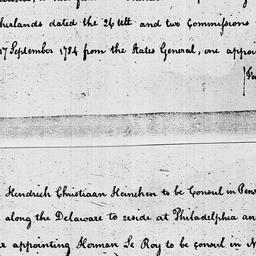 therlands dated the 26 Ult and two Commissions
17 September 1784 from the States General, one appoin
Hendrich Christiaan Heineken to be Consul in Penn
along the Delaware to reside at Philadelphia an
appointing Herman Le Roy to be Consul in N